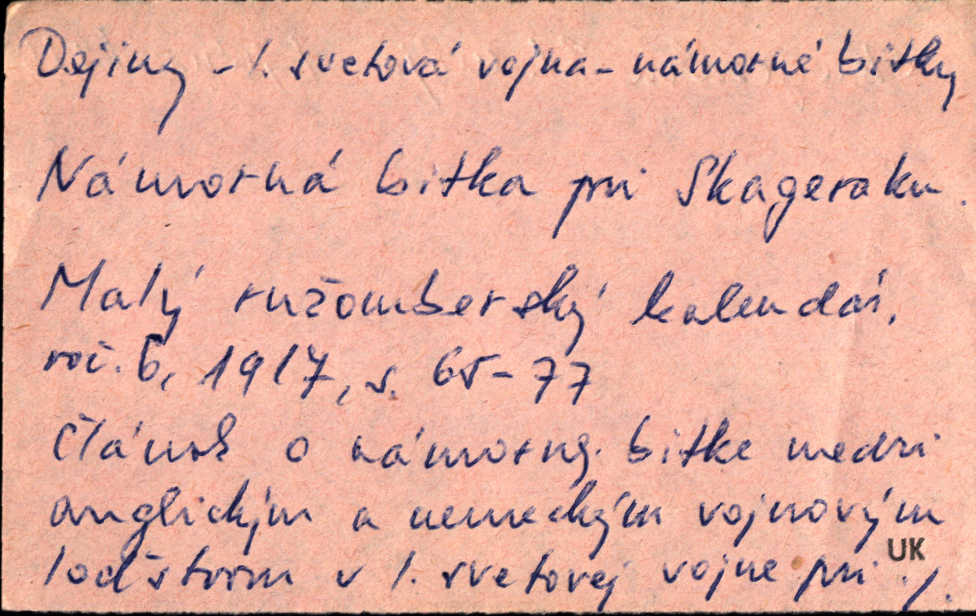 Dejiny - 1. svetová vojna - námorné bitky
Námorná bitka pri Skageraku.
Malý ružomberský kalendár,
roč. 6, 1917, s. 65-77
Článok o námornej bitke medzi
anglickým a nemeckým vojnovým
loďstvom v 1. svetovej vojne pri ./.
UK